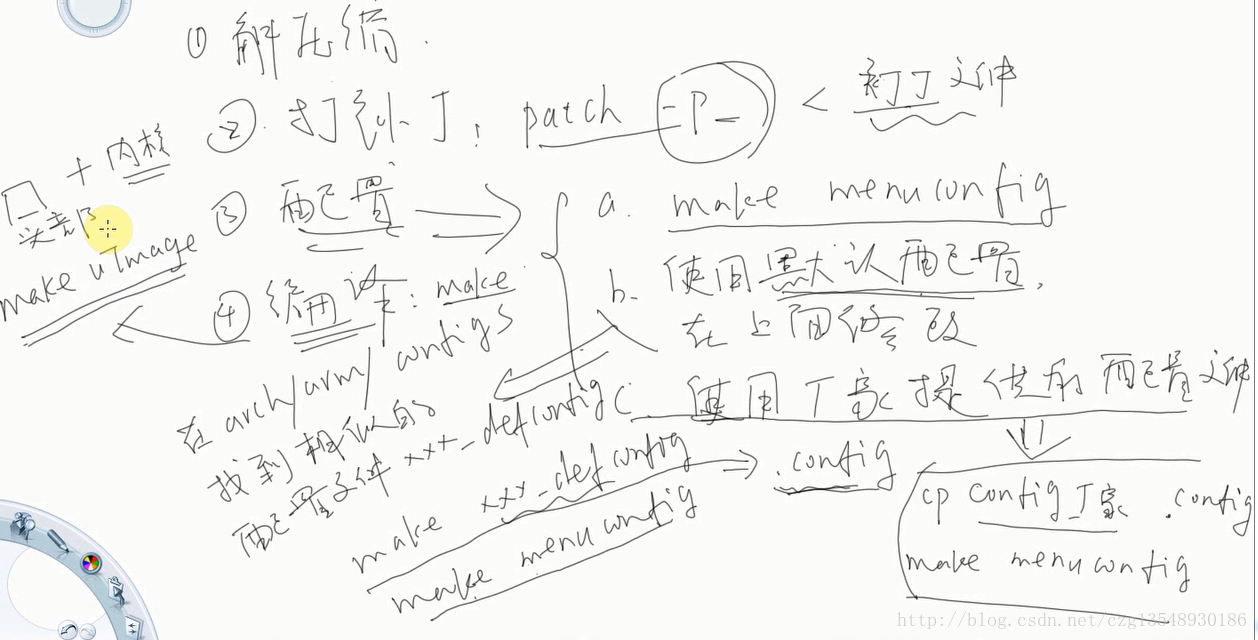 ① 解压缩.
② 打补丁: patch -P_ < 补丁文件
③ 配置 ⇒
a. make menuconfig
b. 使用默认配置,
在上面修改
c. 使用厂家提供的配置文件
cp config_厂家 .config
make menuconfig
④ 编译: make
make uImage
头部 + 内核
在 arch/arm/configs
找到相似的
配置文件 xxx_defconfig
make xxx_defconfig ⇒ .config
make menuconfig
http://blog.csdn.net/czg13548930186